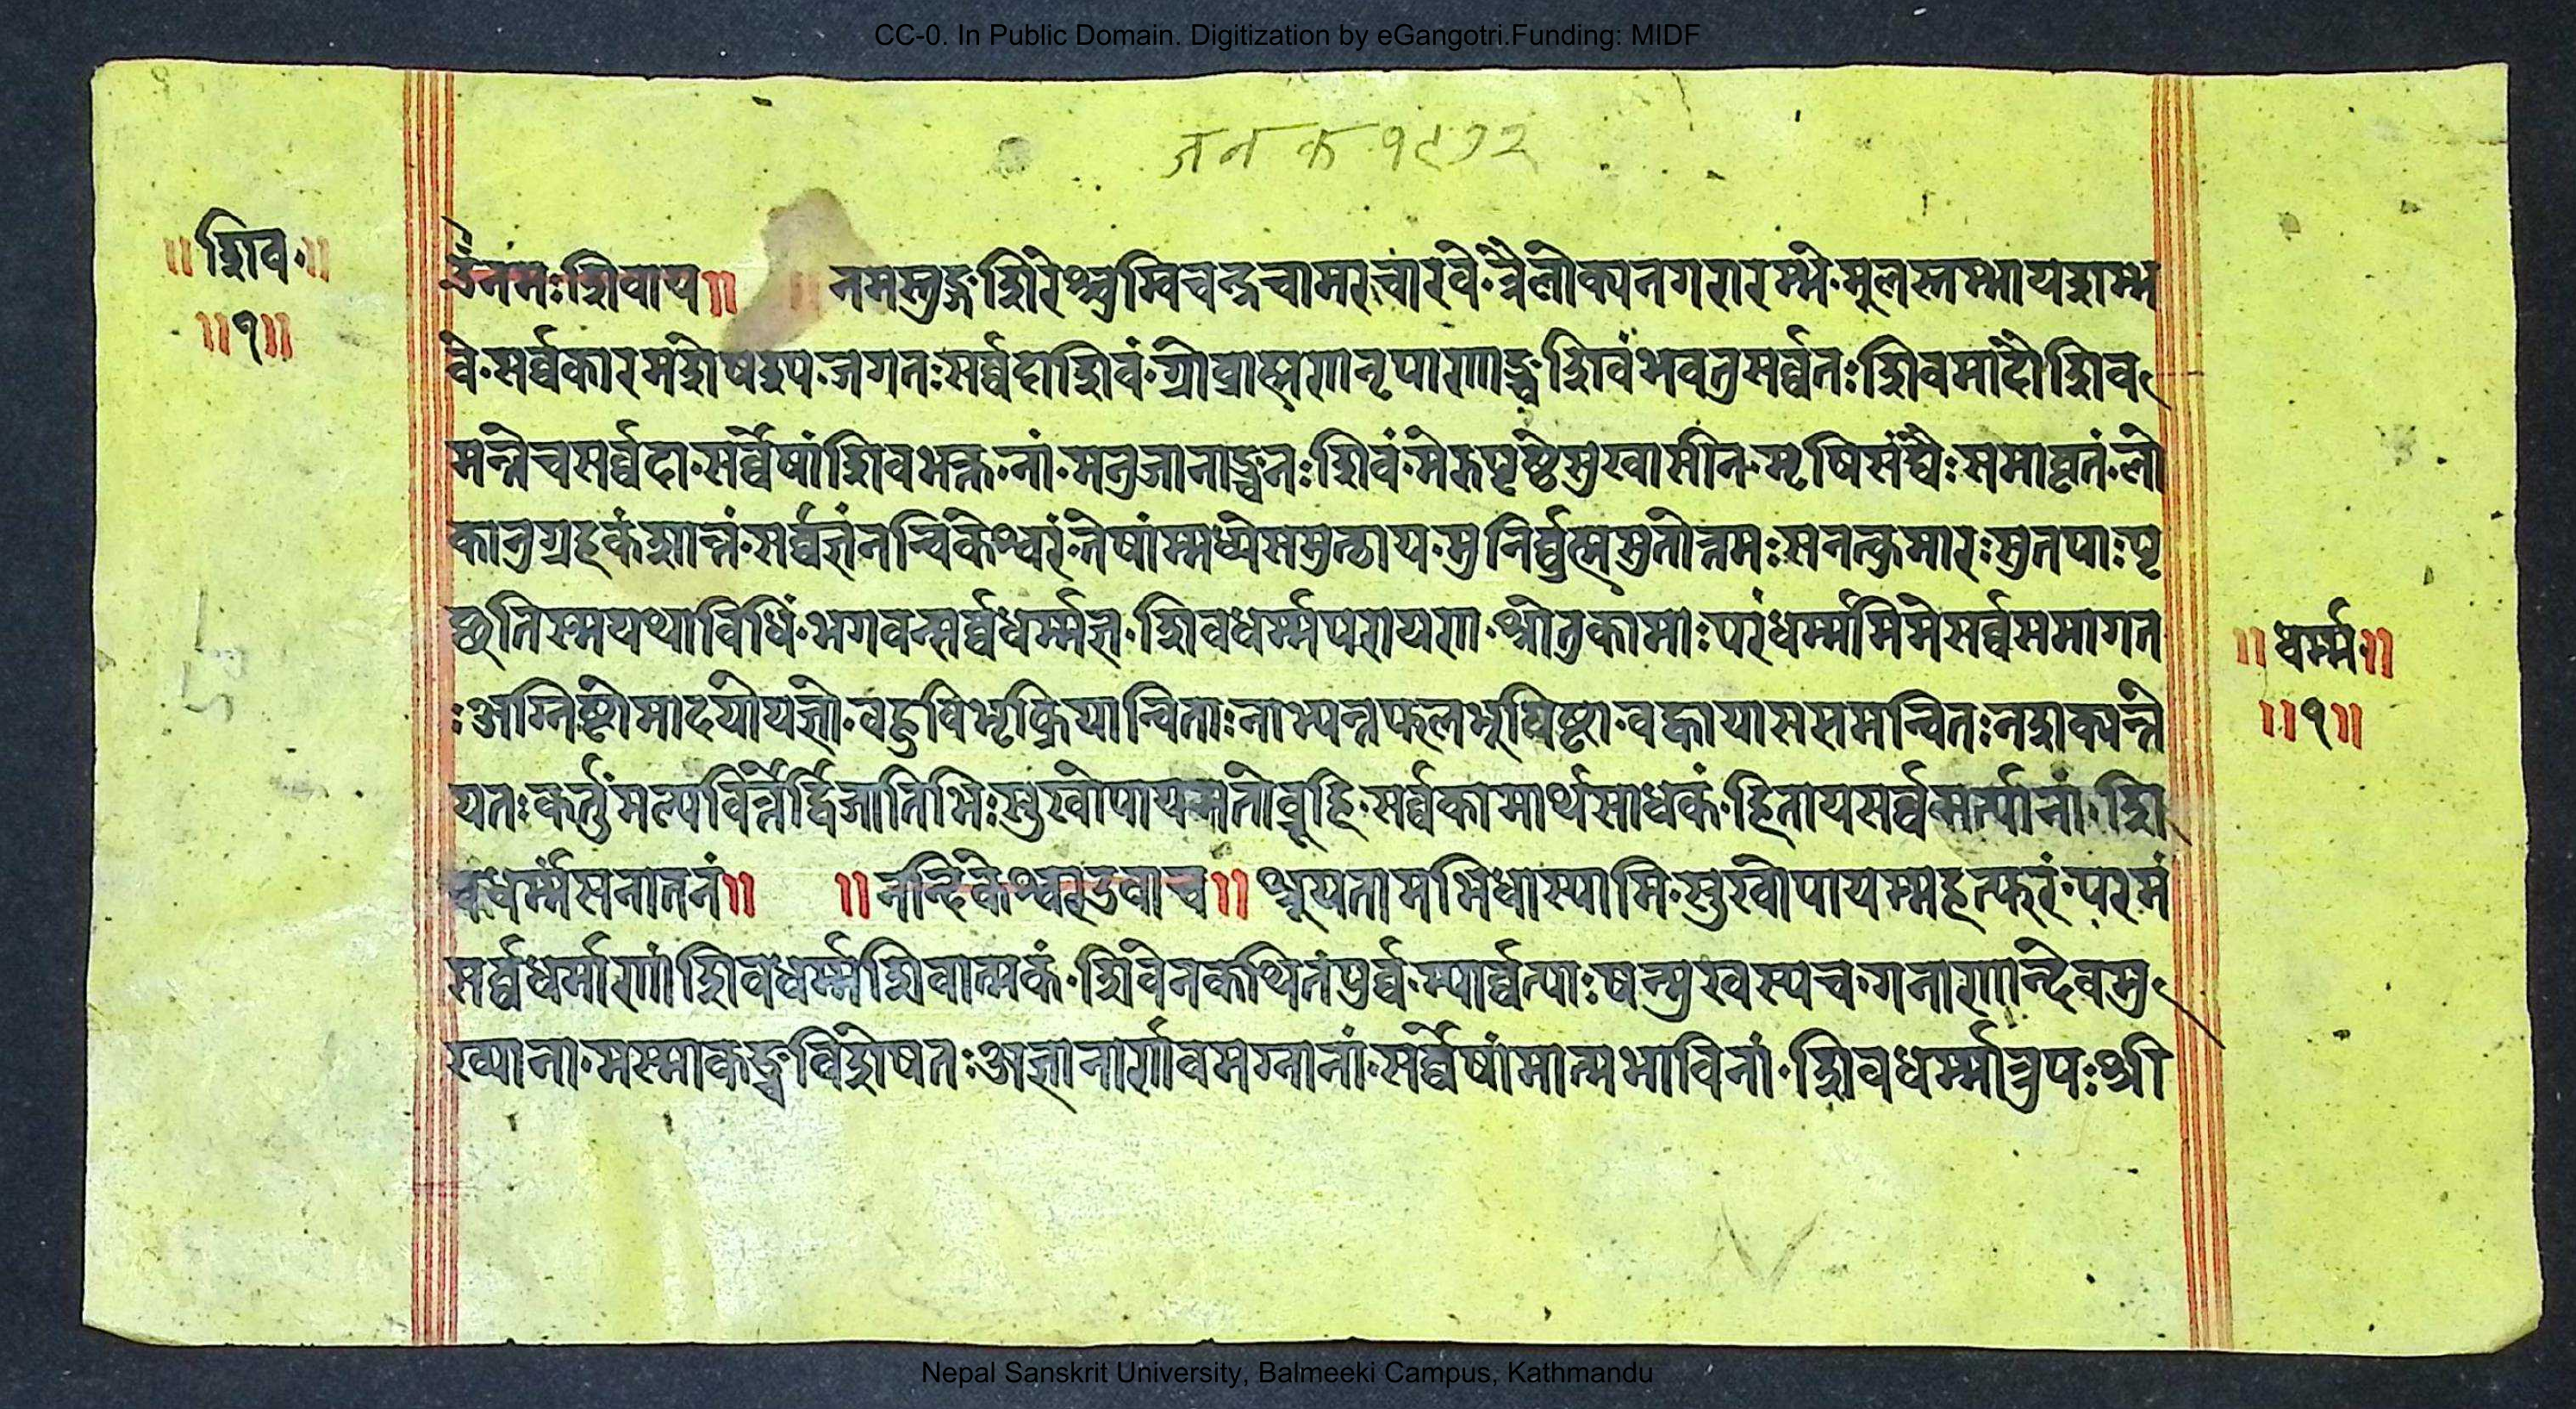 CC-0. In Public Domain. Digitization by eGangotri.Funding: MIDF
जनक १९७२
॥ शिव ॥
॥ १ ॥
ॐ नमः शिवाय ॥ ॥ नमस्तुङ्गशिरश्चुम्विचन्द्रचामरचारवे·त्रैलोक्यनगरारम्भे·मूलस्तम्भायशम्भ
वे·सर्व्वकारमशेषश्य·जगतःसर्व्वदाशिवं·ग्रोब्राह्मणनृपाणाञ्चशिवंभवतुसर्व्वतःशिवमादौशिव
मन्तेचसर्व्वदा·सर्व्वेषांशिवभक्त·नां·मनुजानाञ्चनःशिवं·मेरुपृष्ठेसुखासीन·मृषिसंघैःसमावृतं·लो
कानुग्रहकंशान्तं·सर्व्वज्ञंनन्दिकेश्वरं·तेषांम्मध्येसमुत्थाय·मुनिर्ब्ब्रह्मसुतोत्तमःसनत्कुमारःसुतपाःपृ
च्छतिस्मयथाविधिं·भगवन्सर्व्वधर्म्मज्ञ·शिवधर्म्मपरायण·श्रोतुकामाःपरंधर्म्ममिमेसर्व्वसमागत
ःअग्निष्टोमादयोयज्ञो·वहुविभृक्रियान्विताःनाभ्यन्तफलभूयिष्टा·वह्वायाससमन्वितःनशक्यन्ते
यतःकर्तुंमल्पवित्तैर्द्विजातिभिःसुखोपायमतोब्रूहि·सर्व्वकामार्थसाधकं·हितायसर्व्वमर्त्यानां·शि
वधर्म्मंसनातनं ॥ ॥ नन्दिकेश्वरउवाच ॥ श्रूयतामभिधास्यामि·सुखोपायम्महत्फरं·परमं
सर्व्वधर्माणांशिवधर्म्मंशिवात्मकं·शिवेनकथितंपुर्व्व·म्पार्व्वत्याःषन्मुखस्यच·गनाणान्देवमु
ख्याना·मस्माकञ्चविशेषतःअज्ञानार्णवमग्नानां·सर्व्वेषांमात्मभाविनां·शिवधर्म्मोत्रुपःश्री
॥ धर्म्म ॥
॥ १ ॥
Nepal Sanskrit University, Balmeeki Campus, Kathmandu